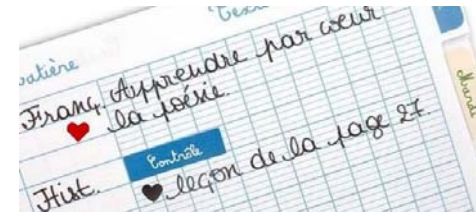 Texte
matière
Franç. Apprendre par cœur
la poésie.
Contrôle
Hist. leçon de la page 27.
Mardi